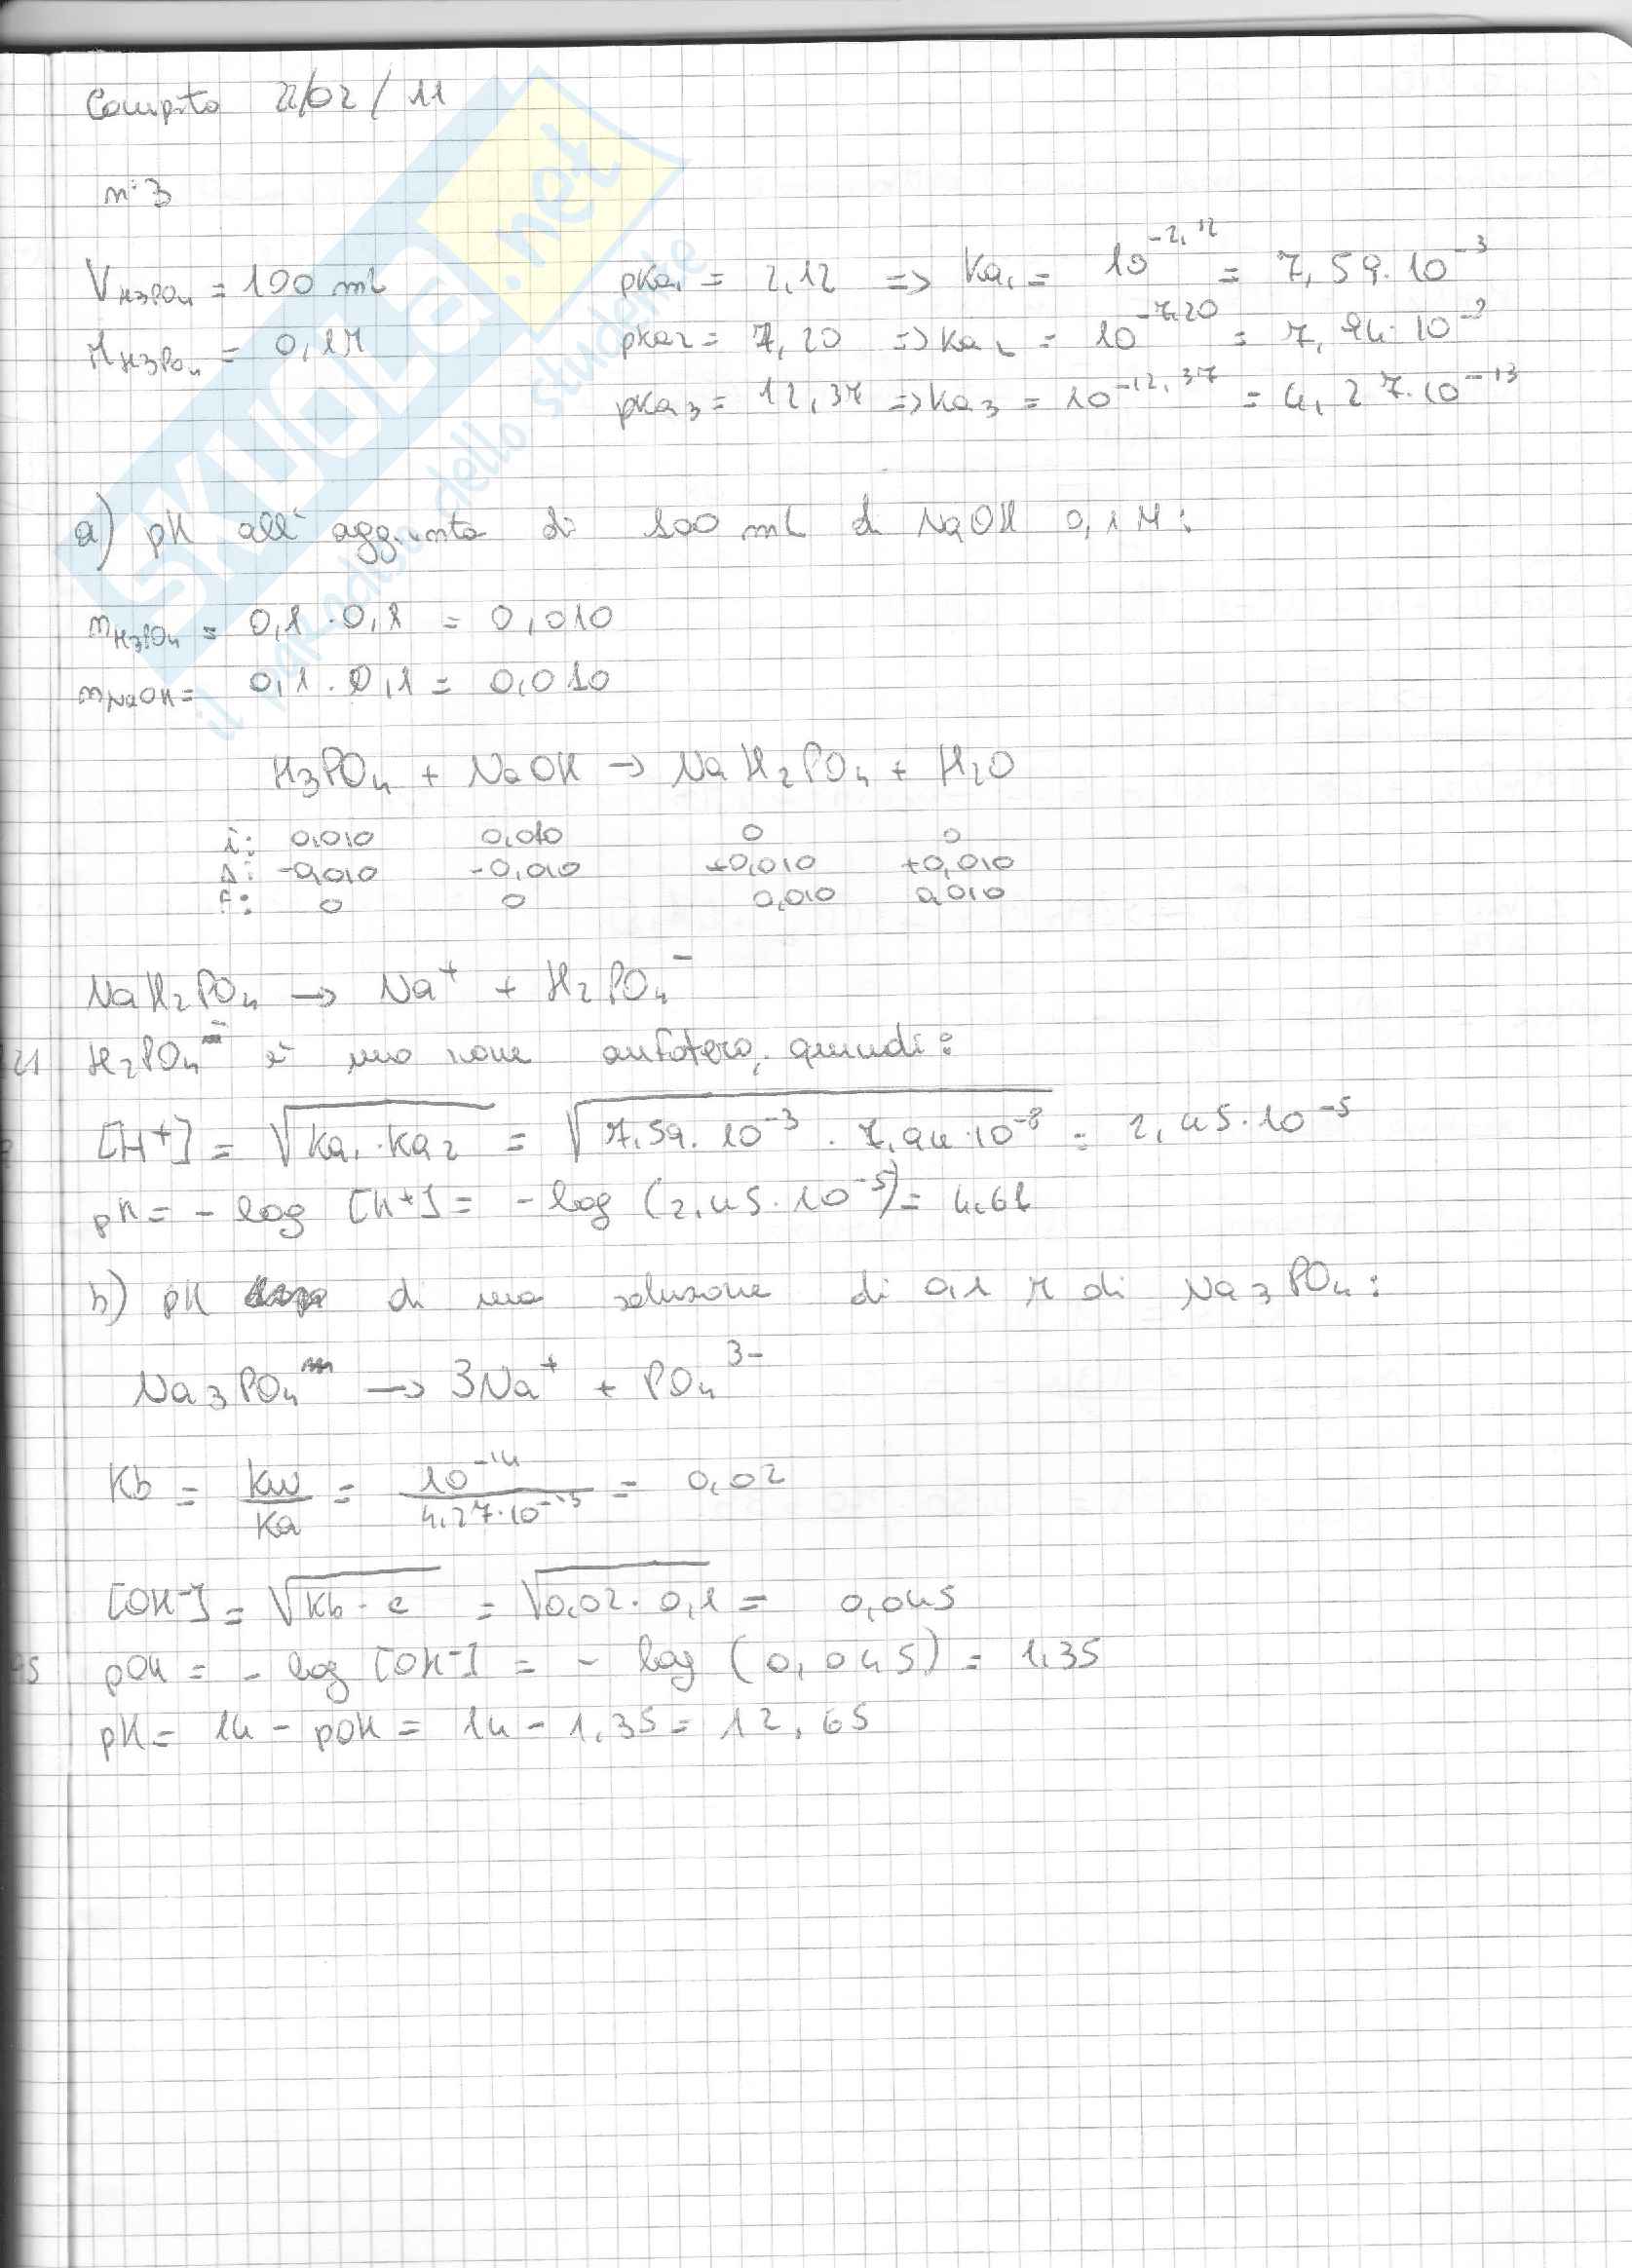 Compito 22/02/11
n°3
V H3PO4 = 100 ml pKa1 = 2,12 => Ka1 = 10^-2,12 = 7,59·10^-3
M H3PO4 = 0,1M pKa2 = 7,20 => Ka2 = 10^-7,20 = 7,94·10^-8
pKa3 = 12,37 => Ka3 = 10^-12,37 = 4,27·10^-13
a) pH all'aggiunta di 100 ml di NaOH 0,1 M:
n H3PO4 = 0,1 · 0,1 = 0,010
n NaOH = 0,1 · 0,1 = 0,010
H3PO4 + NaOH → NaH2PO4 + H2O
i: 0,010 0,010 0 0
Δ: -0,010 -0,010 +0,010 +0,010
f: 0 0 0,010 0,010
NaH2PO4 → Na+ + H2PO4-
H2PO4- è uno ione anfotero, quindi:
[H+] = √Ka1·Ka2 = √7,59·10^-3 · 7,94·10^-8 = 2,45·10^-5
pH = -log [H+] = -log (2,45·10^-5) = 4,61
b) pH di una soluzione di 0,1 M di Na3PO4:
Na3PO4 → 3Na+ + PO4 3-
Kb = Kw/Ka = 10^-14/4,27·10^-13 = 0,02
[OH-] = √Kb·c = √0,02·0,1 = 0,045
pOH = -log [OH-] = -log (0,045) = 1,35
pH = 14 - pOH = 14 - 1,35 = 12,65
SKUOLA.net
il paradiso dello studente